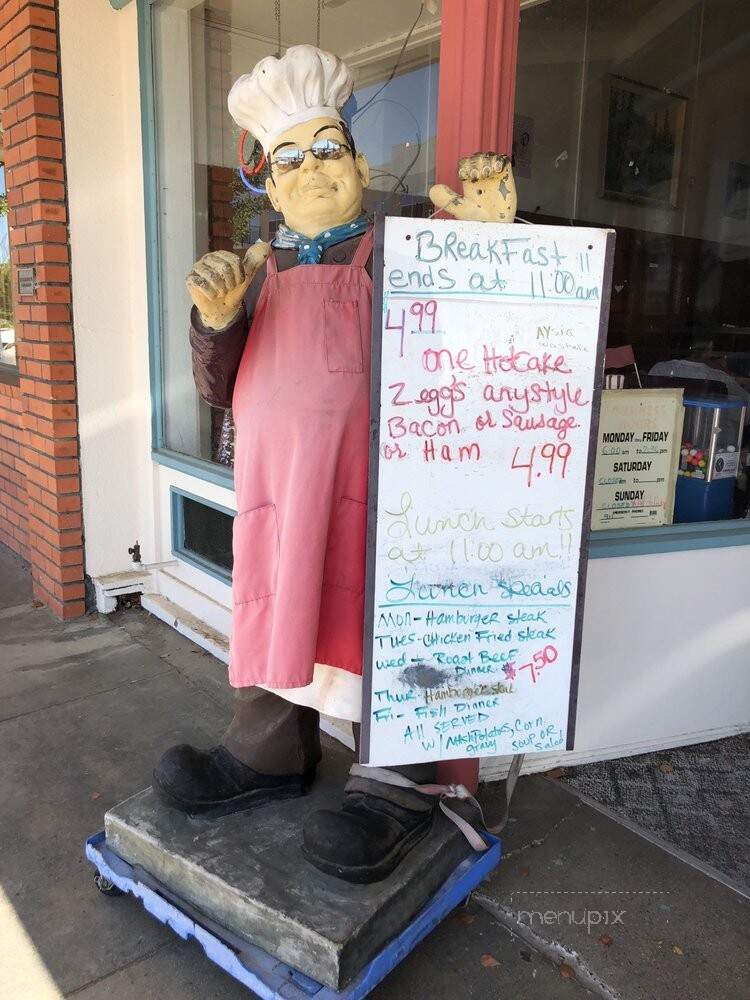 BReakFast
ends at 11:00am
4.99
one Hotcake
2 eggs anystyle
Bacon or Sausage
or Ham 4.99
Lunch starts
at 11:00 am!!
Lunch Specials
Mon - Hamburger steak
Tues - Chicken Fried steak
wed - Roast Beef
Dinner $7.50
Thur - Hamburger steak
Fri - Fish Dinner
All SERVED
w/ MashPotatos, Corn
gravy soup OR
Salad
MONDAY FRIDAY
6:00 am to pm
SATURDAY
to pm
SUNDAY
menupix